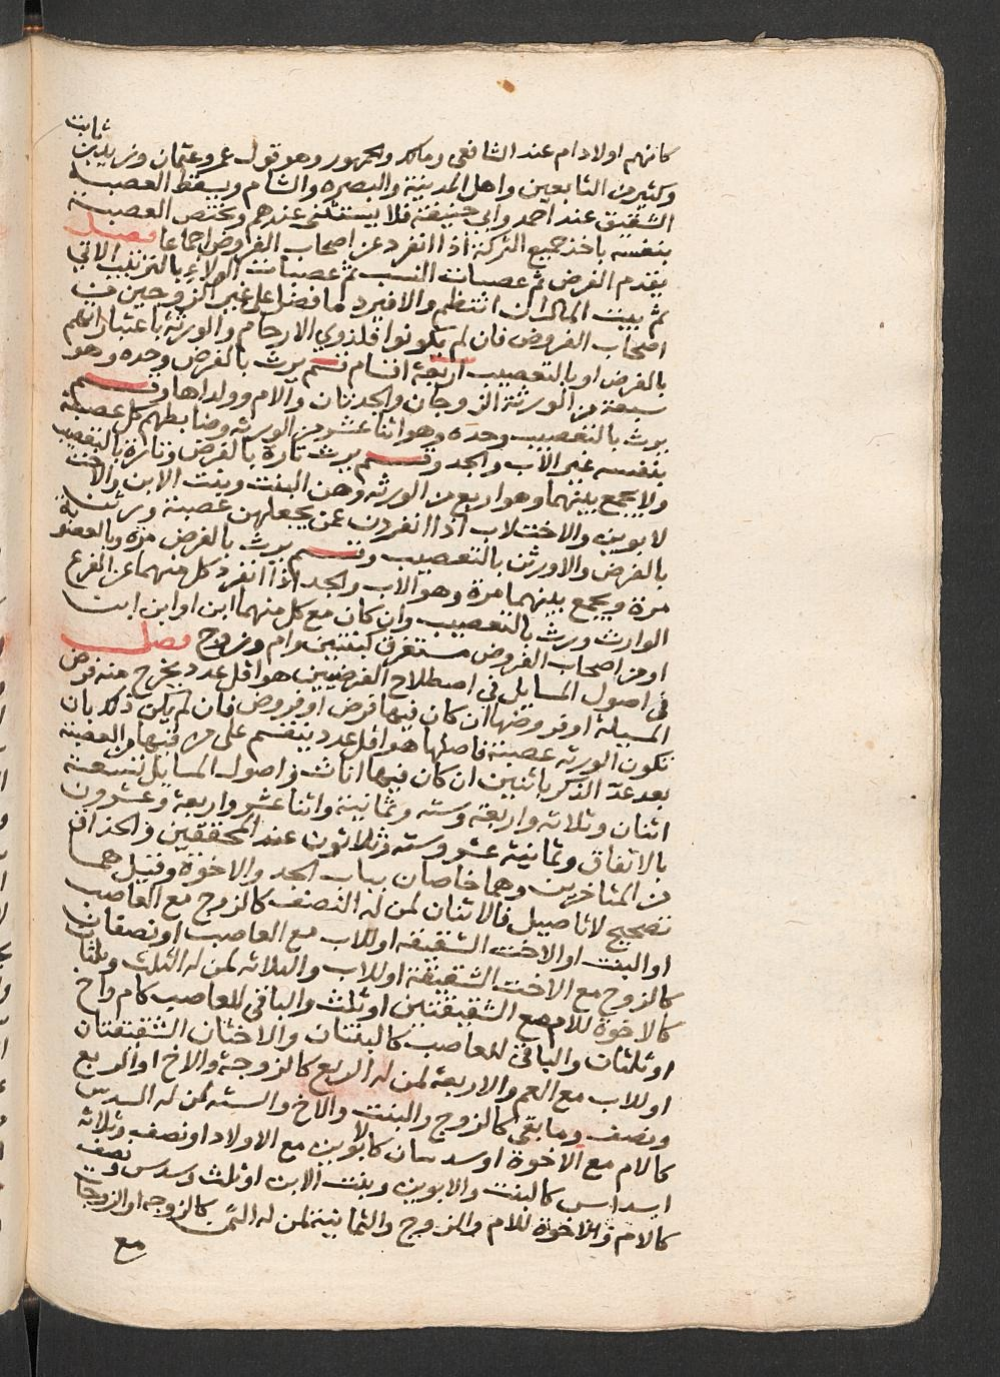 كانهم اولاد ام عند الشافعي ومالك والجمهور وهو قول عمر وعثمان وزيد بن ثابت
وكثير من التابعين واهل المدينة والبصره والشام ويسقط العصبة
الشقيق عند احمد وابي حنيفة فلا يستثنى عندهم ويختص العصبة
بنفسه باخذ جميع التركة اذا انفرد عن اصحاب الفروض اجماعا فصل
يقدم الفرض ثم عصبات النسب ثم عصبات الولاء بالترتيب الاتي
ثم بيت المال ان انتظم والا فيرد ما فضل على غير الزوجين من
اصحاب الفروض فان لم يكونوا فلذوي الارحام والورثة باعتبار ارثهم
بالفرض او بالتعصيب اربعة اقسام قسم يرث بالفرض وحده وهو
سبعة من الورثة الزوجان والجدتان والام وولداها وقسم
يرث بالتعصيب وحده وهو اثنا عشر من الورثه وضابطهم كل عصبة
بنفسه غير الاب والجد وقسم يرث تارة بالفرض وتارة بالتعصيب
ولا يجمع بينهما وهو اربع من الورثه وهن البنت وبنت الابن والاخت
لابوين والاخت لاب اذا انفردن عمن يجعلهن عصبة ورثن
بالفرض والا ورثن بالتعصيب وقسم يرث بالفرض مرة وبالعصوبة
مرة ويجمع بينهما مرة وهو الاب والجد اذا انفرد كل منهما عن الفرع
الوارث ورث بالتعصيب وان كان مع كل منهما ابن او ابن ابن
او من اصحاب الفروض مستغرق كبنتين وام وزوج فصل
في اصول المسايل في اصطلاح الفرضيين هو اقل عدد يخرج منه فرض
المسيلة او فروضها ان كان فيها فرض او فروض فان لم يكن ذلك بان
تكون الورثه عصبة فاصلها هو اقل عدد ينقسم على من فيها من العصبة
بعد عد الذكر باثنين ان كان فيها اناث واصول المسايل تسعة
اثنان وثلاثه واربعة وسته وثمانية واثنا عشر واربعة وعشرون
بالاتفاق وثمانية عشر وسته وثلاثون عند المحققين والحذاق
من المتاخرين وهما خاصان بباب الجد والاخوة وقيل هما
تصحيح لا تاصيل فالاثنان لمن له النصف كالزوج مع العاصب
او البنت او الاخت الشقيقه او للاب مع العاصب او نصفان
كالزوج مع الاخت الشقيقة او للاب والثلاثه لمن له الثلث وثلثان
كالاخوة للام مع الشقيقتين او ثلث والباقي للعاصب كام واخ
او ثلثان والباقي للعاصب كالبنتان والاختان الشقيقتان
او للاب مع العم والاربعة لمن له الربع كالزوجة والاخ او الربع
ونصف وما بقي كالزوج والبنت والاخ والسته لمن له السدس
كالام مع الاخوة او سدسان كابوين مع الاولاد او نصف وثلاثه
اسداس كالبنت والابوين وبنت الابن او ثلث وسدس ونصف
كالام والاخوة للام والزوج والثمانية لمن له الثمن كالزوجه او الزوجات
مع